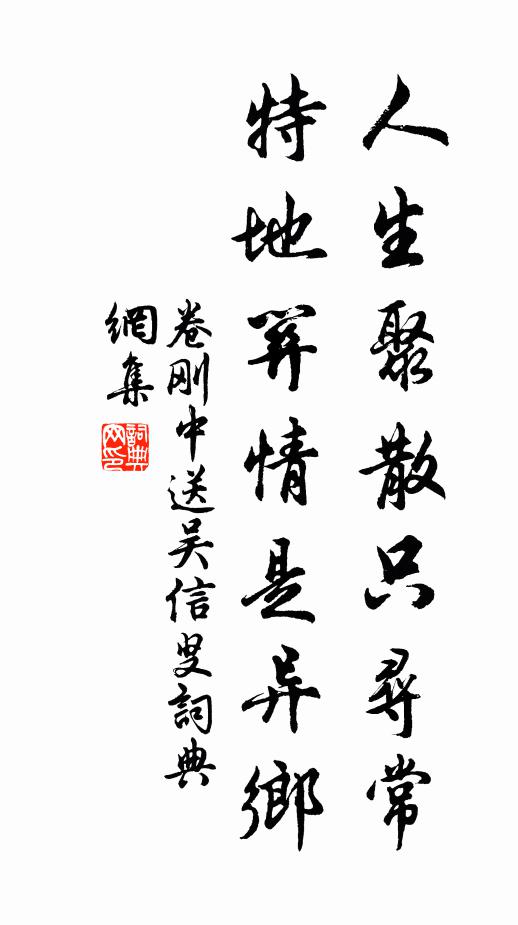 人生聚散只尋常
特地関情是异鄉
卷刚中送吴信叟詞典
網集
詞典网印